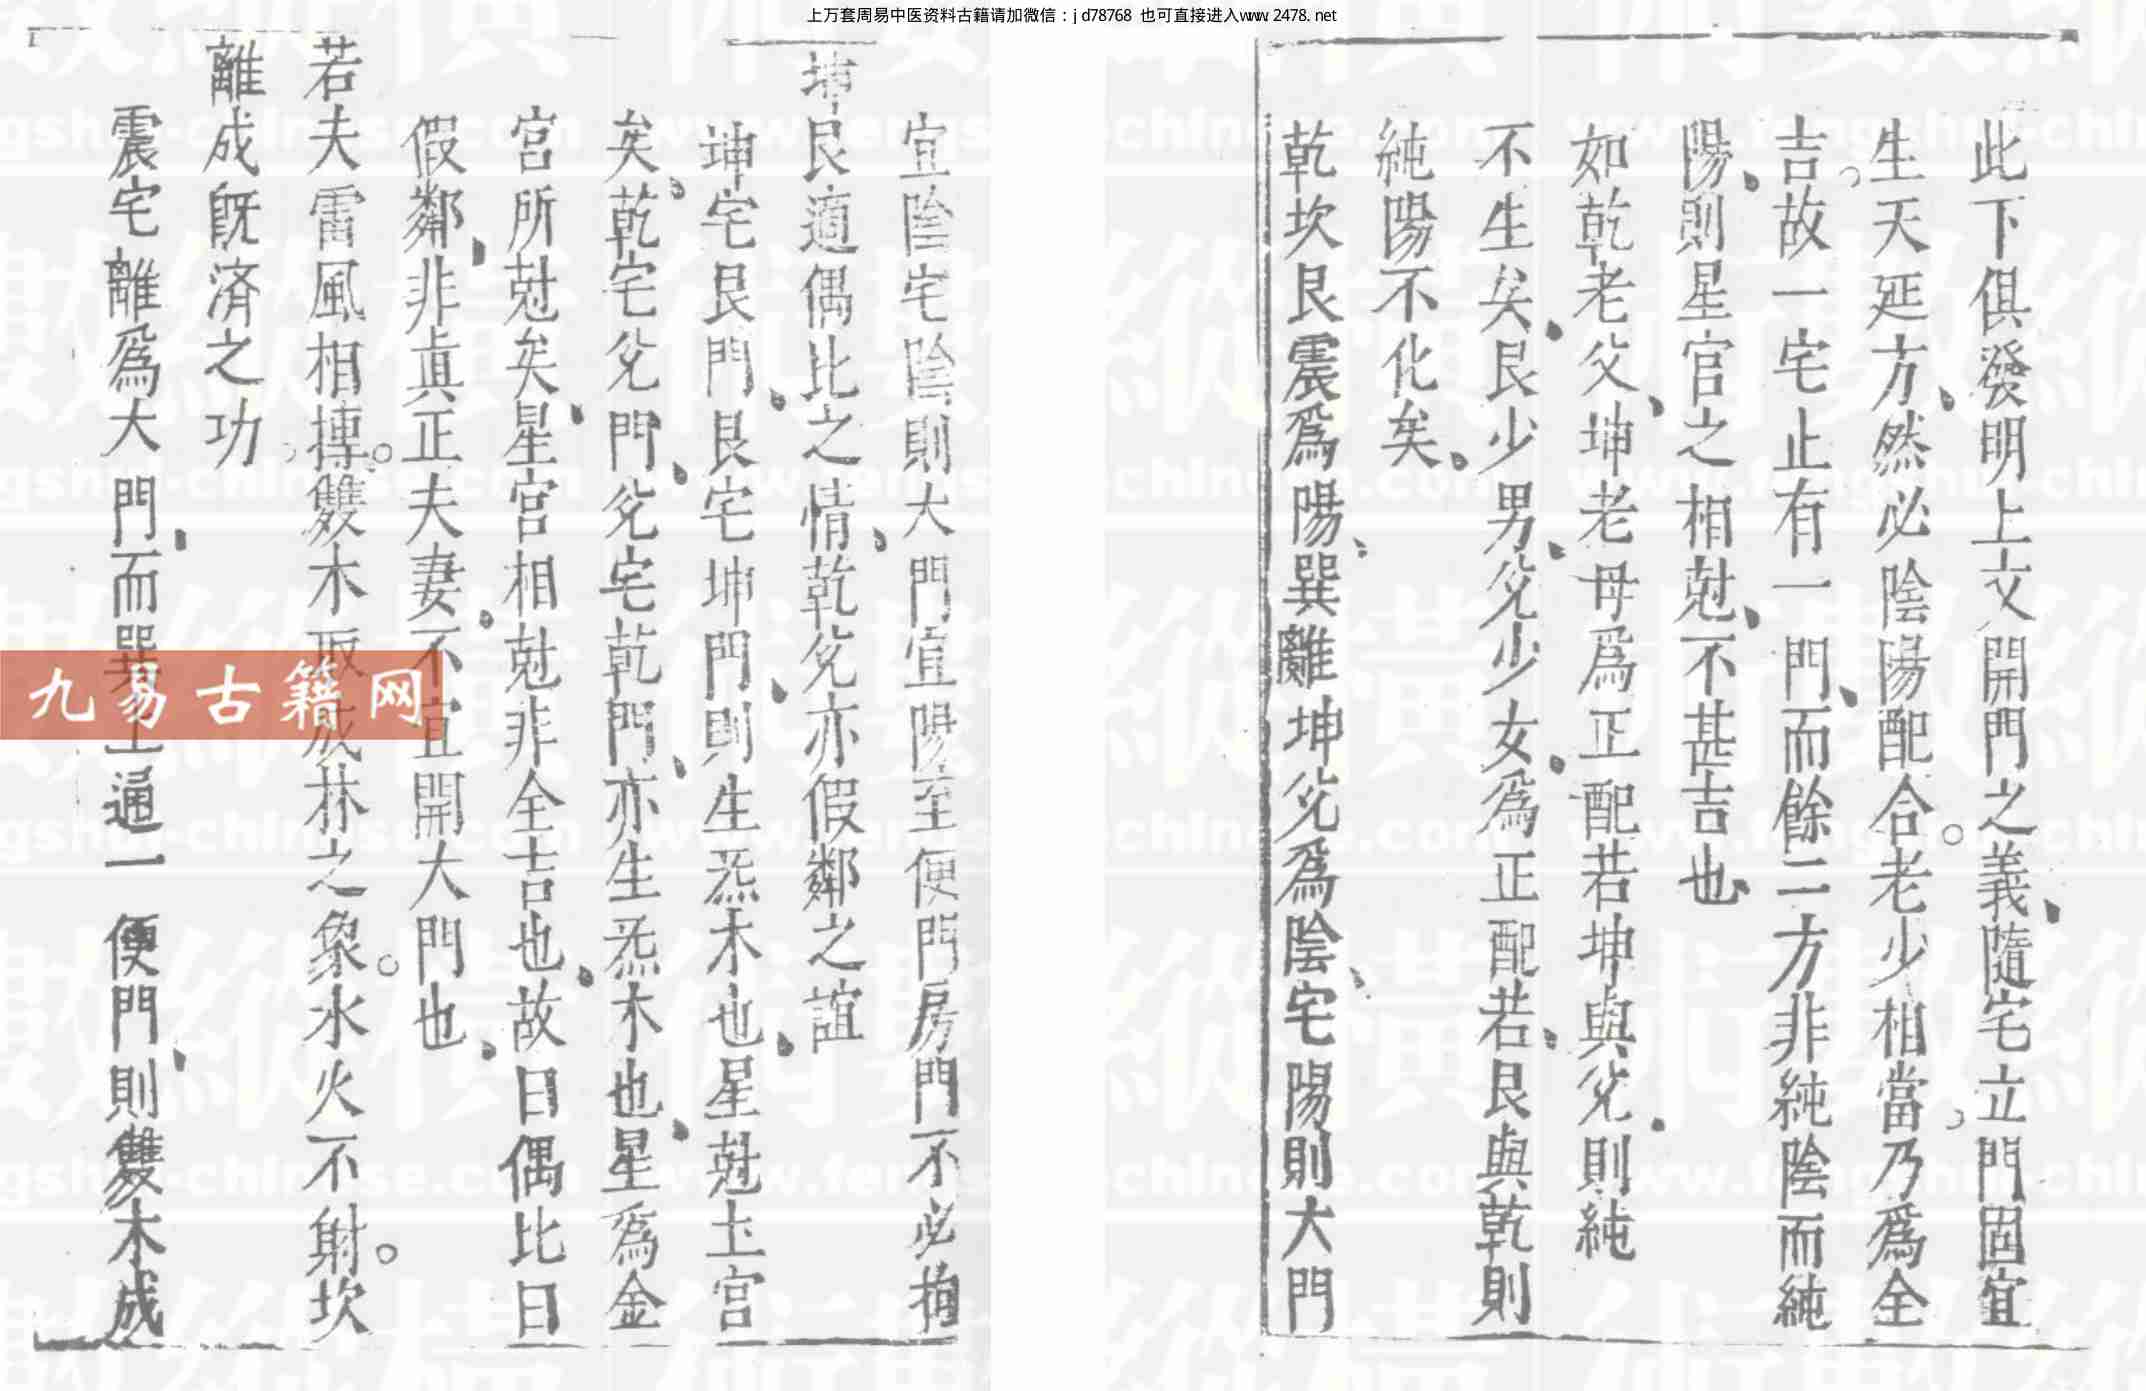 上万套周易中医资料古籍请加微信：jd78768 也可直接进入www.2478.net
此下俱發明上文開門之義隨宅立門固宜
生天延方然必陰陽配合老少相當乃爲全
吉故一宅止有一門而餘二方非純陰而純
陽則星宫之相尅不甚吉也
如乾老父坤老母爲正配若坤與兌則純
不生矣艮少男兌少女爲正配若艮與乾則
純陽不化矣
乾坎艮震爲陽巽離坤兌爲陰宅陽則大門
宜陰宅陰則大門宜陽至便門房門不必拘
坤艮適偶比之情乾兌亦假鄰之誼
坤宅艮門艮宅坤門則生炁木也星尅土宫
矣乾宅兌門兌宅乾門亦生炁木也星爲金
宫所尅矣星宫相尅非全吉也故曰偶比曰
假鄰非眞正夫妻不宜開大門也
若夫雷風相搏雙木取成林之象水火不射坎
離成既濟之功
震宅離爲大門而巽上通一便門則雙木成
九易古籍网